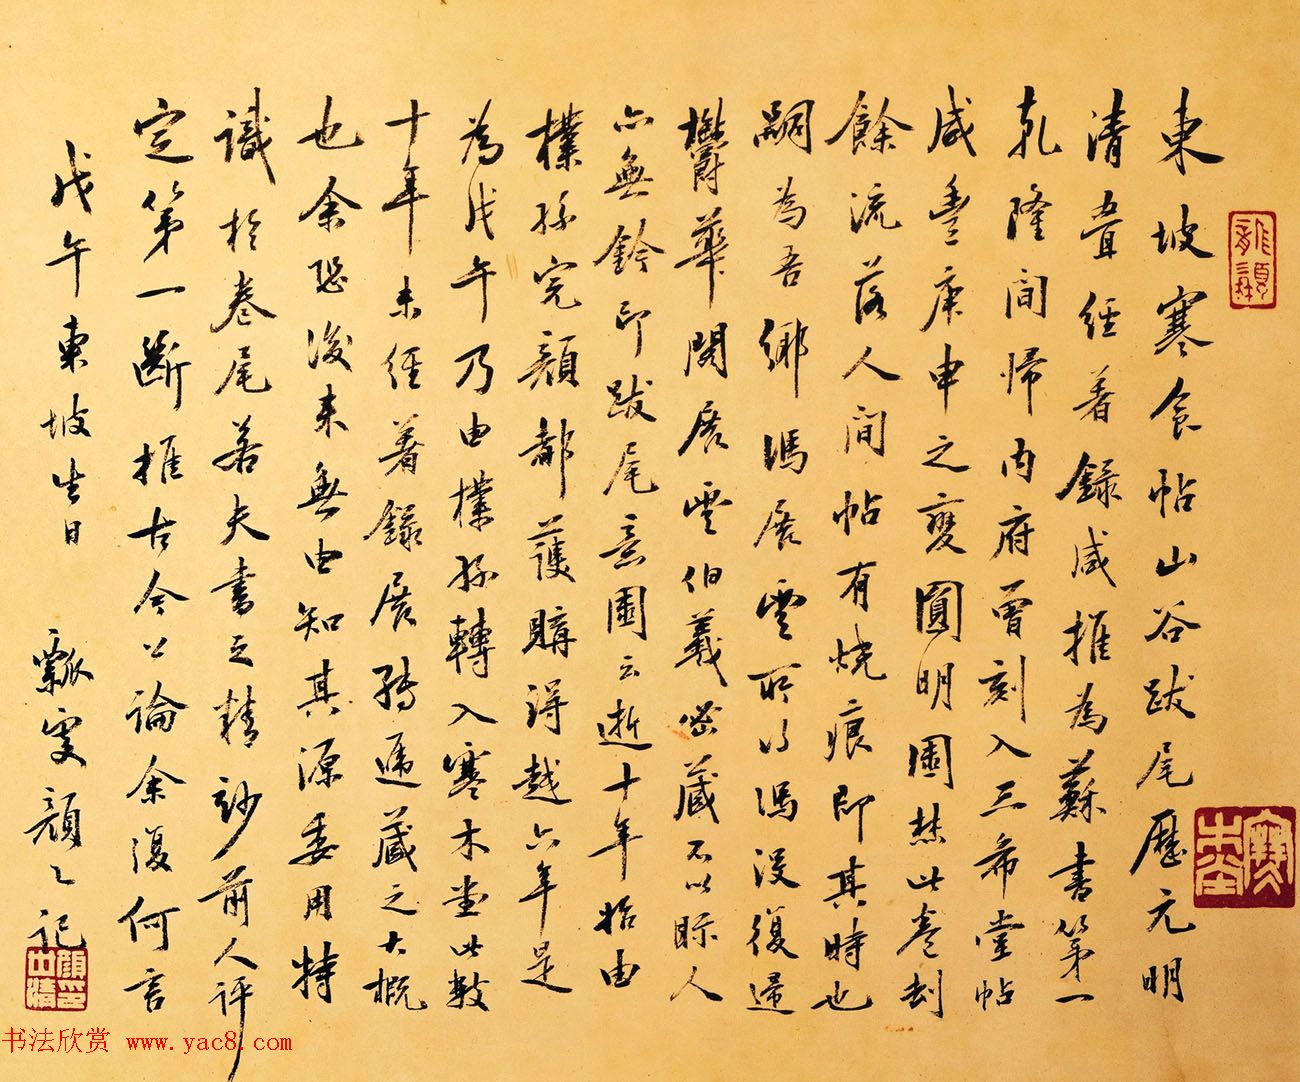 東坡寒食帖山谷跋尾歷元明
清疊經著錄咸推為蘇書第一
乾隆間歸內府曾刻入三希堂帖
咸豐庚申之變圓明園焚此卷刼
餘流落人間帖有燒痕即其時也
嗣為吾鄉馮展雲所得馮沒復歸
欝華閣展雲伯羲密藏不以眎人
亦無鈐印跋尾意園云逝十年始由
樸孫完顏都護購得越六年是
為戊午乃由樸孫轉入寒木堂此數
十年未經著錄展轉遞藏之大概
也余恐後來無由知其源委用特
識於卷尾若夫書之精妙前人評
定第一斷推古今公論余復何言
戊午東坡生日
瓢叟顏〻記
寒木堂
顏印世清
书法欣赏 www.yac8.com